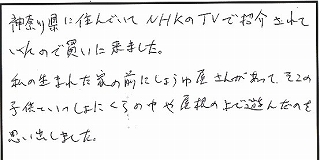 神奈り県に住んでいて NHKのTVで紹介されて
いたので買いに来ました。
私の生まれた家の前にしょうゆ屋さんがあって、そこの
子供といっしょにくらの中や屋根の上で遊んだのを
思い出しました。